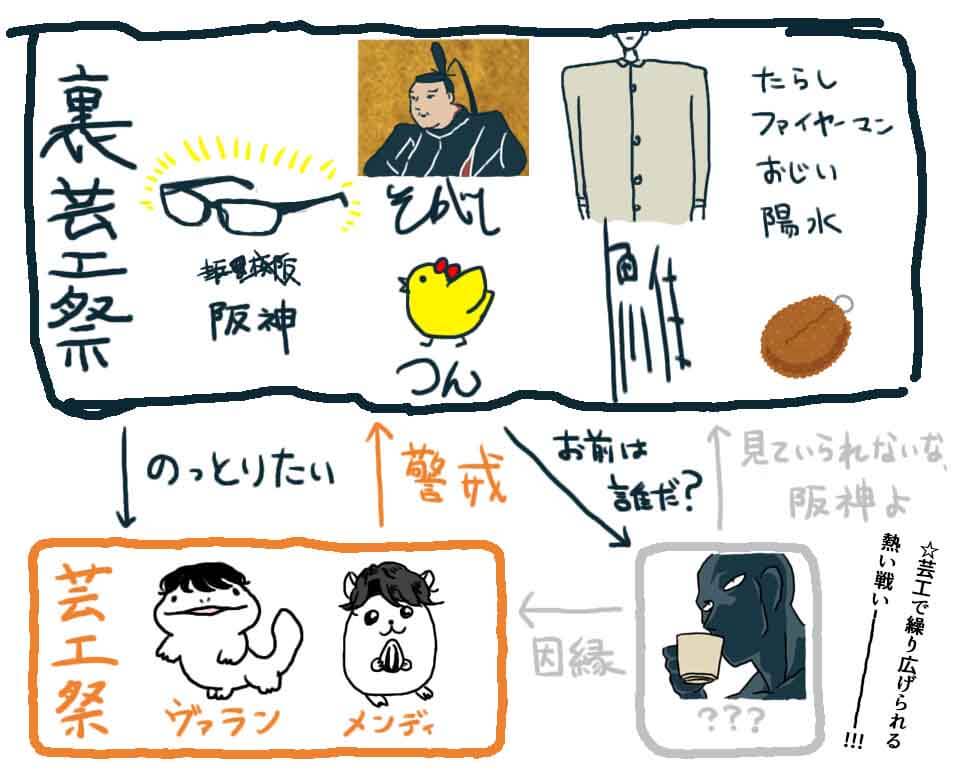 裏芸工祭
阪神
そがし
つん
たらし
ファイヤーマン
おじい
陽水
のっとりたい
警戒
お前は
誰だ?
見ていられないな、
阪神よ
芸工祭
ヴァラン
メンディ
因縁
???
☆芸工で繰り広げられる
熱い戦い――――!!!